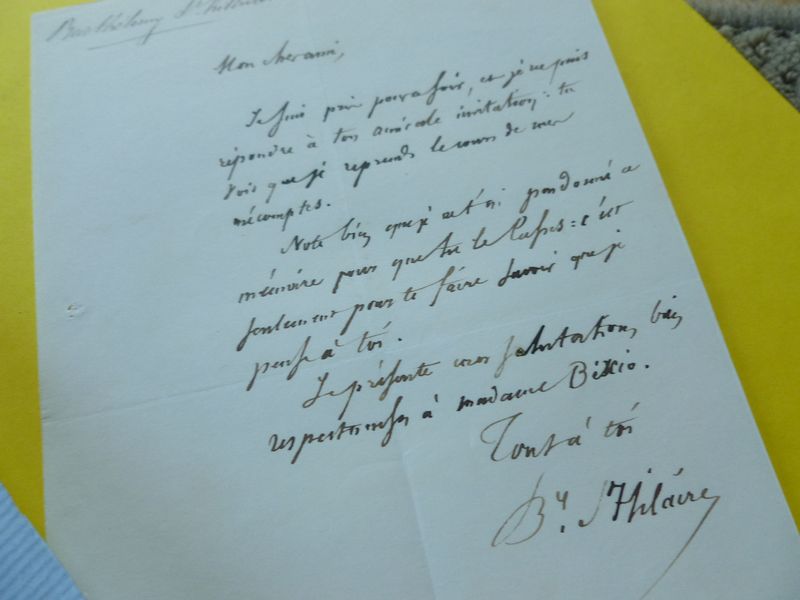 Barthélemy St hilaire
Mon cher ami,
Je suis pris pour ce soir, et je ne puis
répondre à ton amicale invitation : tu
vois que je reprends le cours de mes
mécomptes.
Note bien que je ne t'ai pas donné ce
mémoire pour que tu le lises : c'est
seulement pour te faire savoir que je
pense à toi.
Je présente mes salutations bien
respectueuses à madame Bixio.
Tout à toi
By. St Hilaire